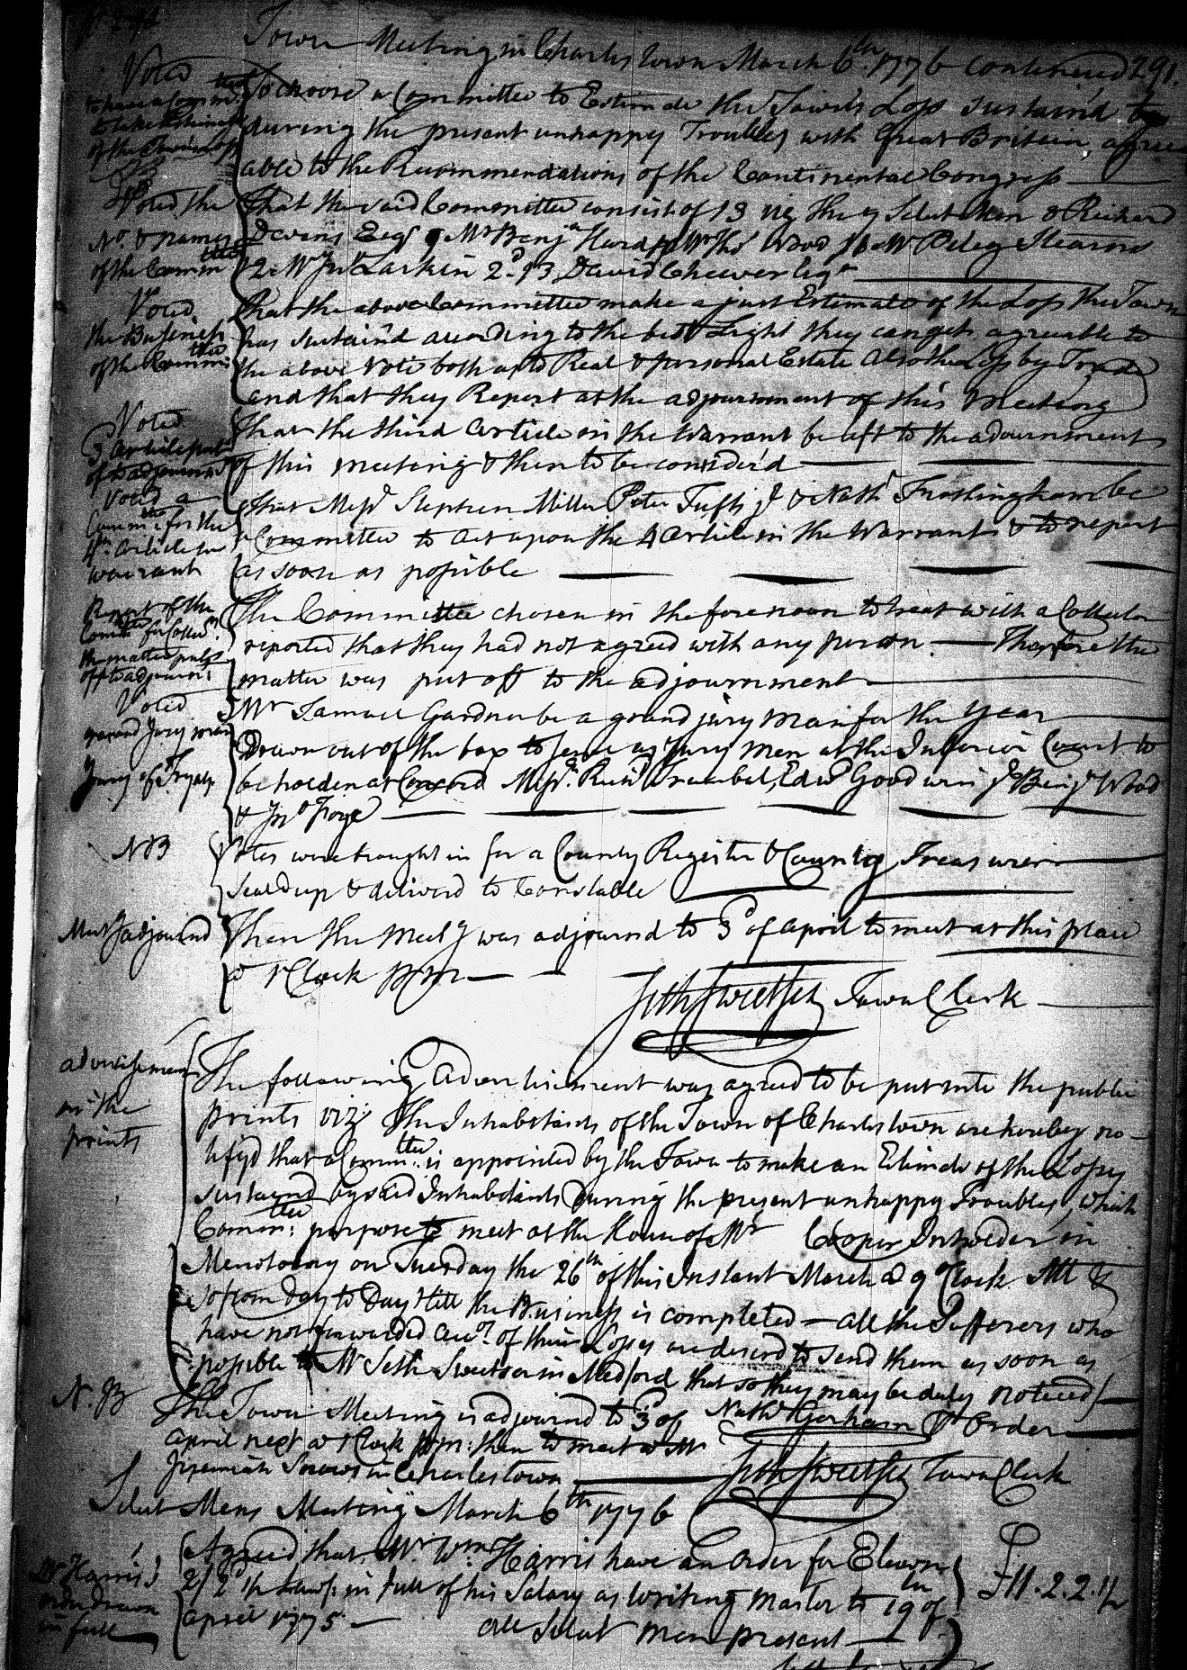 Town Meeting in Charlestown March 6th 1776 continued 291.
Voted
to have a Comm.ttee
to take Estimate
of the Town's Loss
To choose a Committee to Estimate the Town's Loss sustain'd
during the present unhappy Troubles with Great Britain, agree
able to the Recommendations of the Continental Congress
Voted the
No. & names
of the Commttee
That the said Committee consist of 13 viz the 7 Select Men & Richard
Devens Esqr 9 Mr Benja Hurd 10 Mr Thos Wood 11 Mr Peleg Stearns
12. Mr Jno Larkin 2d. 13 David Cheever Esqr
Voted
the Business
of the Committee
That the above Committee make a just Estimate of the Loss the Town
has sustain'd according to the best Light they can get agreeable to
the above Vote both as to Real & personal Estate also the Loss by Trade
and that they Report at the adjournment of this Meeting
Voted
3 Article put
off to adjournmt
That the third Article in the Warrant be left to the adjournment
of this meeting & then to be consider'd
Voted a
Commttee for the
4th Article in
warrant
That Messrs Stephen Miller Peter Tufts jr & Nathl Frothingham be
a Committee to act upon the 4 Article in the Warrant & to report
as soon as possible
Report of the
Commttee for Collectr.
the matter put
off to adjourn:
The Committee chosen in the forenoon to treat with a Collector
reported that they had not agreed with any person. Therefore the
matter was put off to the adjournment
Voted
grand Jury man
&
Jury of Tryals
Mr Samuel Gardner be a grand jury man for the year
Drawn out of the box to serve as Jury men at the Inferior Court to
be holden at Concord Messrs. Richd Trumbal, Edwd Goodwin jr Benja Wood
& Jno Froye
NB
Votes were brought in for a County Register & County Treasurer
Seald up & deliverd to Constable
Meetg adjournd
Then the Meetg was adjournd to 3d of April to meet at this place
@ 1 Clock PM
Seth Sweetser Town Clerk
advertisement
in the
prints
The following Advertisement was agreed to be put into the public
prints viz: The Inhabitants of the Town of Charlestown are hereby no-
tifyd that a Commttee is appointed by the Town to make an Estimate of the Losses
sustaind by said Inhabitants During the present unhappy Troubles, which
Commttee: purpose to meet at the House of Mr Cooper Inholder in
Menotomy on Tuesday the 26th of this Instant March @ 9 oClock AM &
so from Day to Day till the Business is completed — all the Sufferers who
have not forwarded accots. of their Losses are desird to send them as soon as
possible to Mr Seth Sweetser in Medford that so they may be duly noticed
Nathl Gorham Pr Order
N.B
The Town Meeting is adjournd to 3d of
April next @ 1 Clock PM: then to meet @ Mr
Jeremiah Snows in Charlestown
Seth Sweetser Town Clerk
Select Mens Meeting March 6th 1776
Mr Harris's
order drawn
in full
Agreed that Mr Wm Harris have an Order for Eleven
2/2d 1/2 Lawf: in full of his Salary as Writing Master to 19th of
April 1775.
£11.2.2.1/2
all Select men present